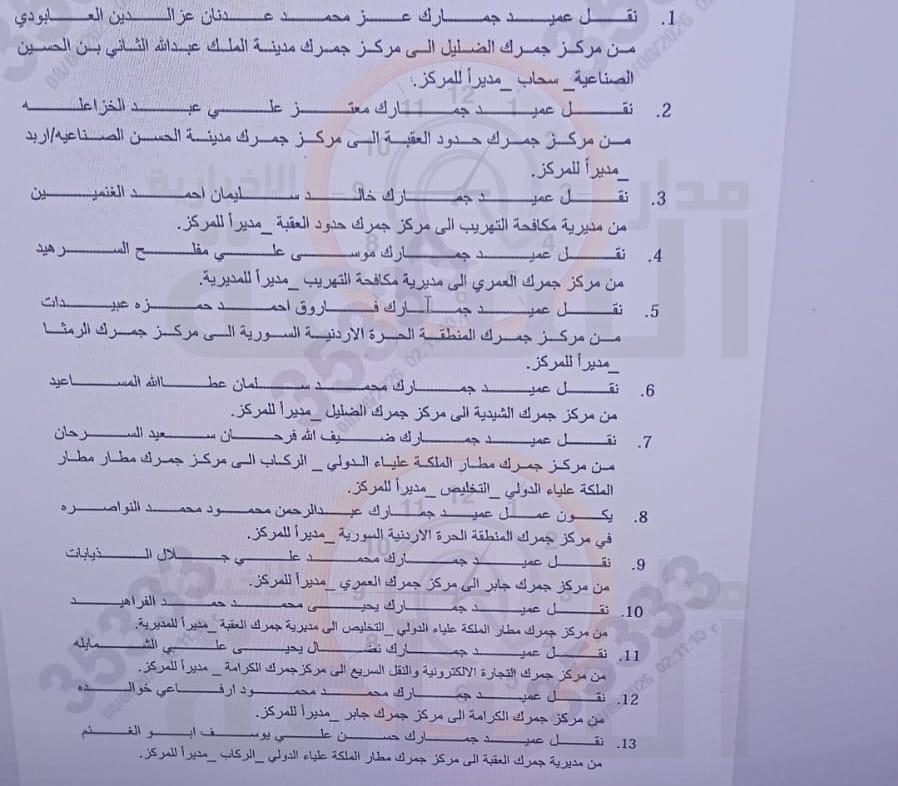 1. نقل عميد جمارك عز محمد عدنان عزالدين العابودي
من مركز جمرك الضليل الى مركز جمرك مدينة الملك عبدالله الثاني بن الحسين
الصناعية_ سحاب _مديراً للمركز.
2. نقل عميد جمارك معتز علي عبد الخزاعله
من مركز جمرك حدود العقبة الى مركز جمرك مدينة الحسن الصناعيه/اربد
_مديراً للمركز.
3. نقل عميد جمارك خالد سليمان احمد الغنميين
من مديرية مكافحة التهريب الى مركز جمرك حدود العقبة _مديراً للمركز.
4. نقل عميد جمارك موسى علي مفلح السرهيد
من مركز جمرك العمري الى مديرية مكافحة التهريب _مديراً للمديرية.
5. نقل عميد جمارك فاروق احمد حمزه عبيدات
من مركز جمرك المنطقة الحرة الاردنية السورية الى مركز جمرك الرمثا
_مديراً للمركز.
6. نقل عميد جمارك محمد سلمان عطاالله المساعيد
من مركز جمرك الشيدية الى مركز جمرك الضليل _مديراً للمركز.
7. نقل عميد جمارك ضيف الله فرحان سعيد السرحان
من مركز جمرك مطار الملكة علياء الدولي _ الركاب الى مركز جمرك مطار مطار
الملكة علياء الدولي _التخليص _مديراً للمركز.
8. يكون عمل عميد جمارك عبدالرحمن محمود محمد النواصره
في مركز جمرك المنطقة الحرة الاردنية السورية _مديراً للمركز.
9. نقل عميد جمارك محمد علي جلال الذيابات
من مركز جمرك جابر الى مركز جمرك العمري _مديراً للمركز.
10. نقل عميد جمارك يحيى محمد حمد الفراهيد
من مركز جمرك مطار الملكة علياء الدولي _التخليص الى مديرية جمرك العقبة _مديراً للمديرية.
11. نقل عميد جمارك نضال يحيى علي الشمايله
من مركز جمرك التجارة الالكترونية والنقل السريع الى مركز جمرك الكرامة _ مديراً للمركز.
12. نقل عميد جمارك محمد محمود ارفاعي خوالده
من مركز جمرك الكرامة الى مركز جمرك جابر _مديراً للمركز.
13. نقل عميد جمارك حسن علي يوسف ابو الغنم
من مديرية جمرك العقبة الى مركز جمرك مطار الملكة علياء الدولي _الركاب _مديراً للمركز.